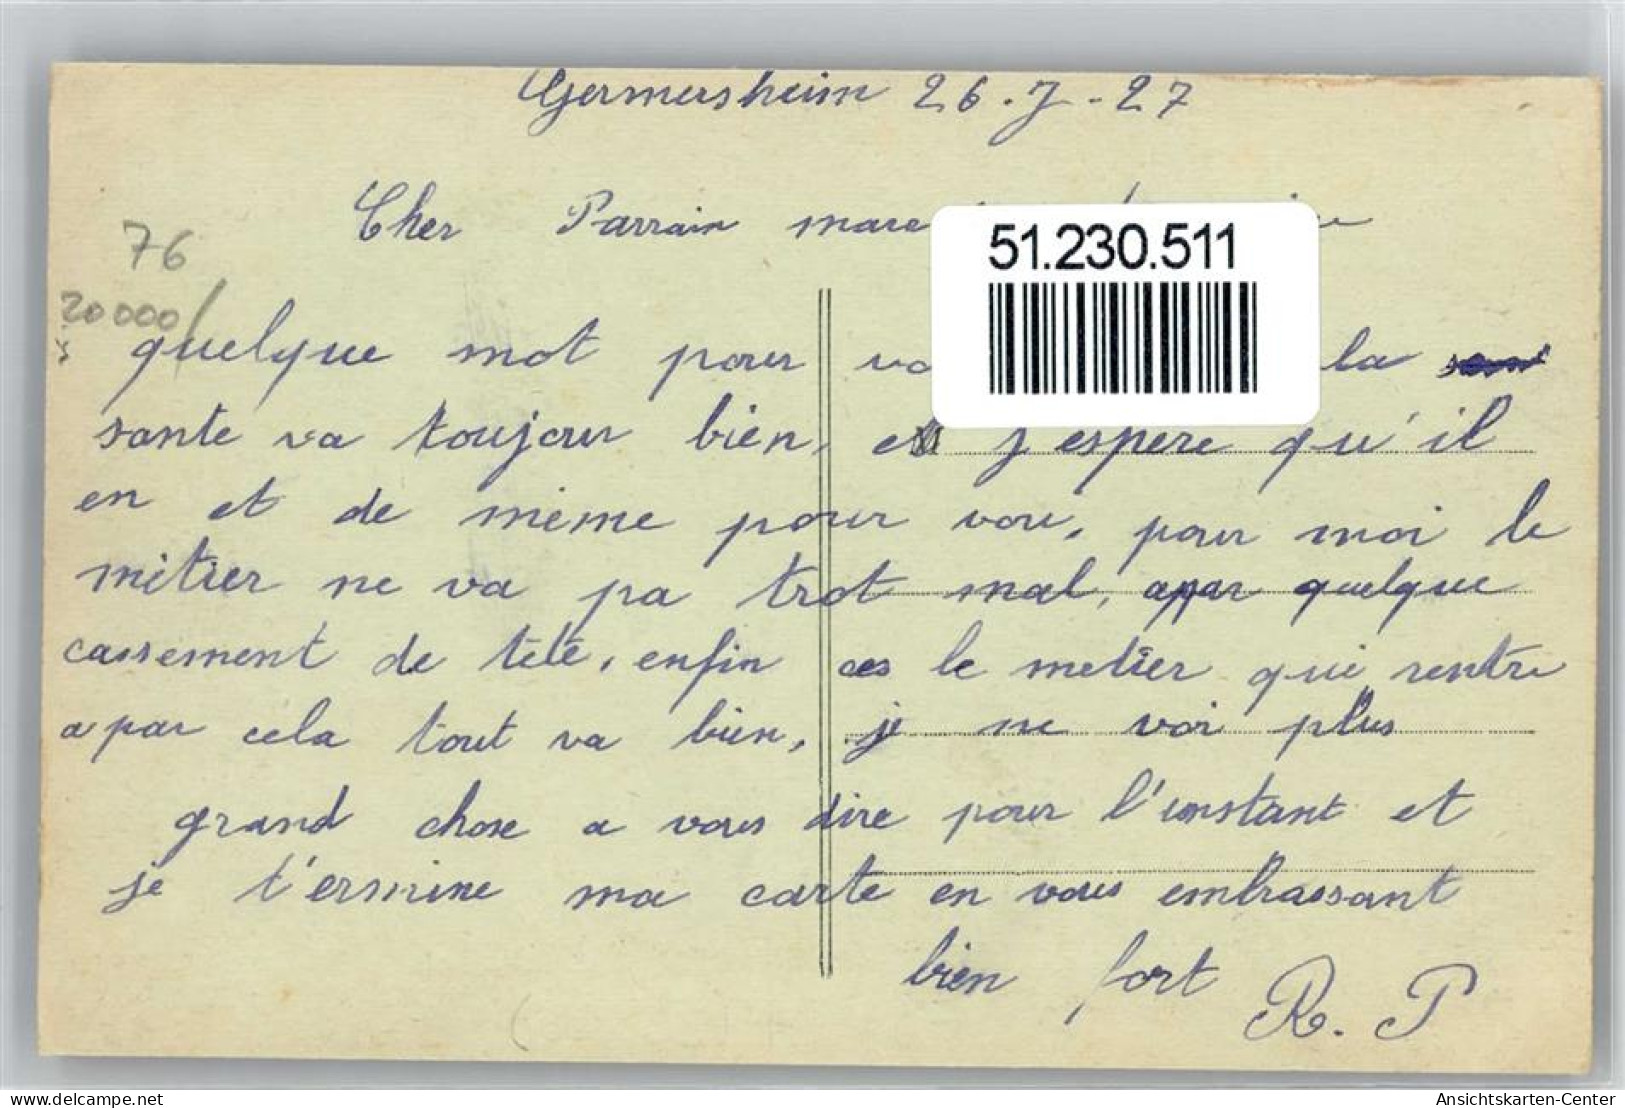 Germersheim 26-7-27
Cher Parrain
51.230.511
76
20000/
quelque mot pour la
sante va toujour bien, j espere qu'il
en et de même pour vou, pour moi le
métier ne va pa trot mal, apar quelque
cassement de tête, enfin ces le metier qui rentre
apar cela tout va bien, je ne voi plus
grand chose a vous dire pour l'instant et
je t'ermine ma carte en vous embrassant
bien fort R. P
delcampe.net
Ansichtskarten-Center